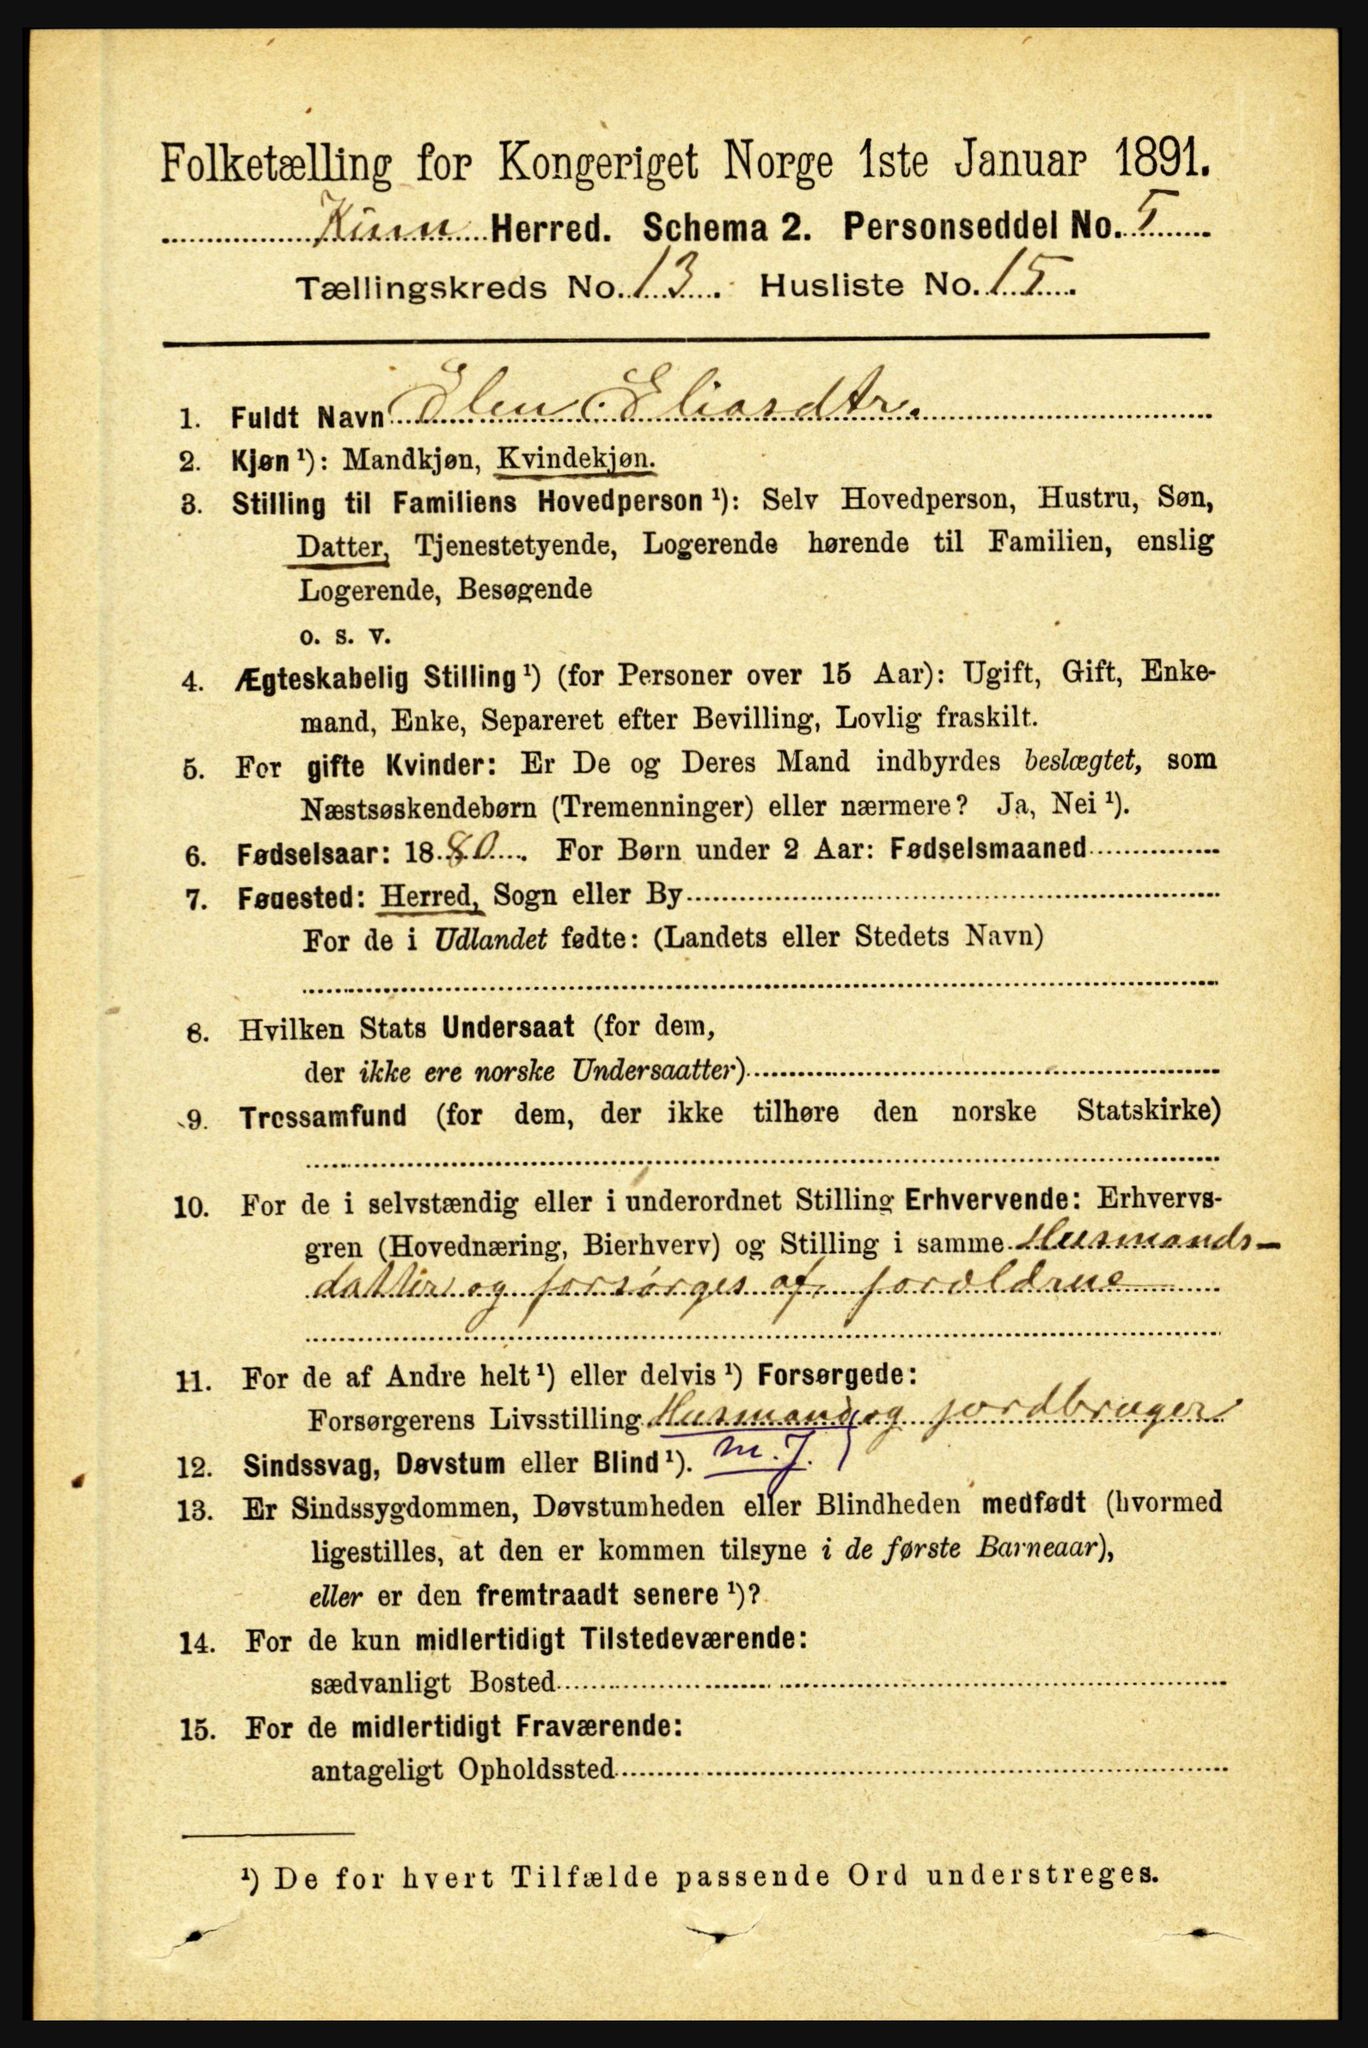 Folketælling for Kongeriget Norge 1ste Januar 1891.
Kinn Herred. Schema 2. Personseddel No. 5
Tællingskreds No. 13. Husliste No. 15.
1. Fuldt Navn Elen Eliasdtr.
2. Kjøn ¹): Mandkjøn, Kvindekjøn.
3. Stilling til Familiens Hovedperson ¹): Selv Hovedperson, Hustru, Søn,
Datter, Tjenestetyende, Logerende hørende til Familien, enslig
Logerende, Besøgende
o. s. v.
4. Ægteskabelig Stilling ¹) (for Personer over 15 Aar): Ugift, Gift, Enke-
mand, Enke, Separeret efter Bevilling, Lovlig fraskilt.
5. For gifte Kvinder: Er De og Deres Mand indbyrdes beslægtet, som
Næstsøskendebørn (Tremenninger) eller nærmere? Ja, Nei ¹).
6. Fødselsaar: 1880. For Børn under 2 Aar: Fødselsmaaned
7. Fødested: Herred, Sogn eller By
For de i Udlandet fødte: (Landets eller Stedets Navn)
8. Hvilken Stats Undersaat (for dem,
der ikke ere norske Undersaatter)
9. Trossamfund (for dem, der ikke tilhøre den norske Statskirke)
10. For de i selvstændig eller i underordnet Stilling Erhvervende: Erhvervs-
gren (Hovednæring, Bierhverv) og Stilling i samme Husmands-
datter og forsørges af forældrene
11. For de af Andre helt ¹) eller delvis ¹) Forsørgede:
Forsørgerens Livsstilling Husmand og jordbruger
12. Sindssvag, Døvstum eller Blind ¹). m. J.
13. Er Sindssygdommen, Døvstumheden eller Blindheden medfødt (hvormed
ligestilles, at den er kommen tilsyne i de første Barneaar),
eller er den fremtraadt senere ¹)?
14. For de kun midlertidigt Tilstedeværende:
sædvanligt Bosted
15. For de midlertidigt Fraværende:
antageligt Opholdssted
¹) De for hvert Tilfælde passende Ord understreges.